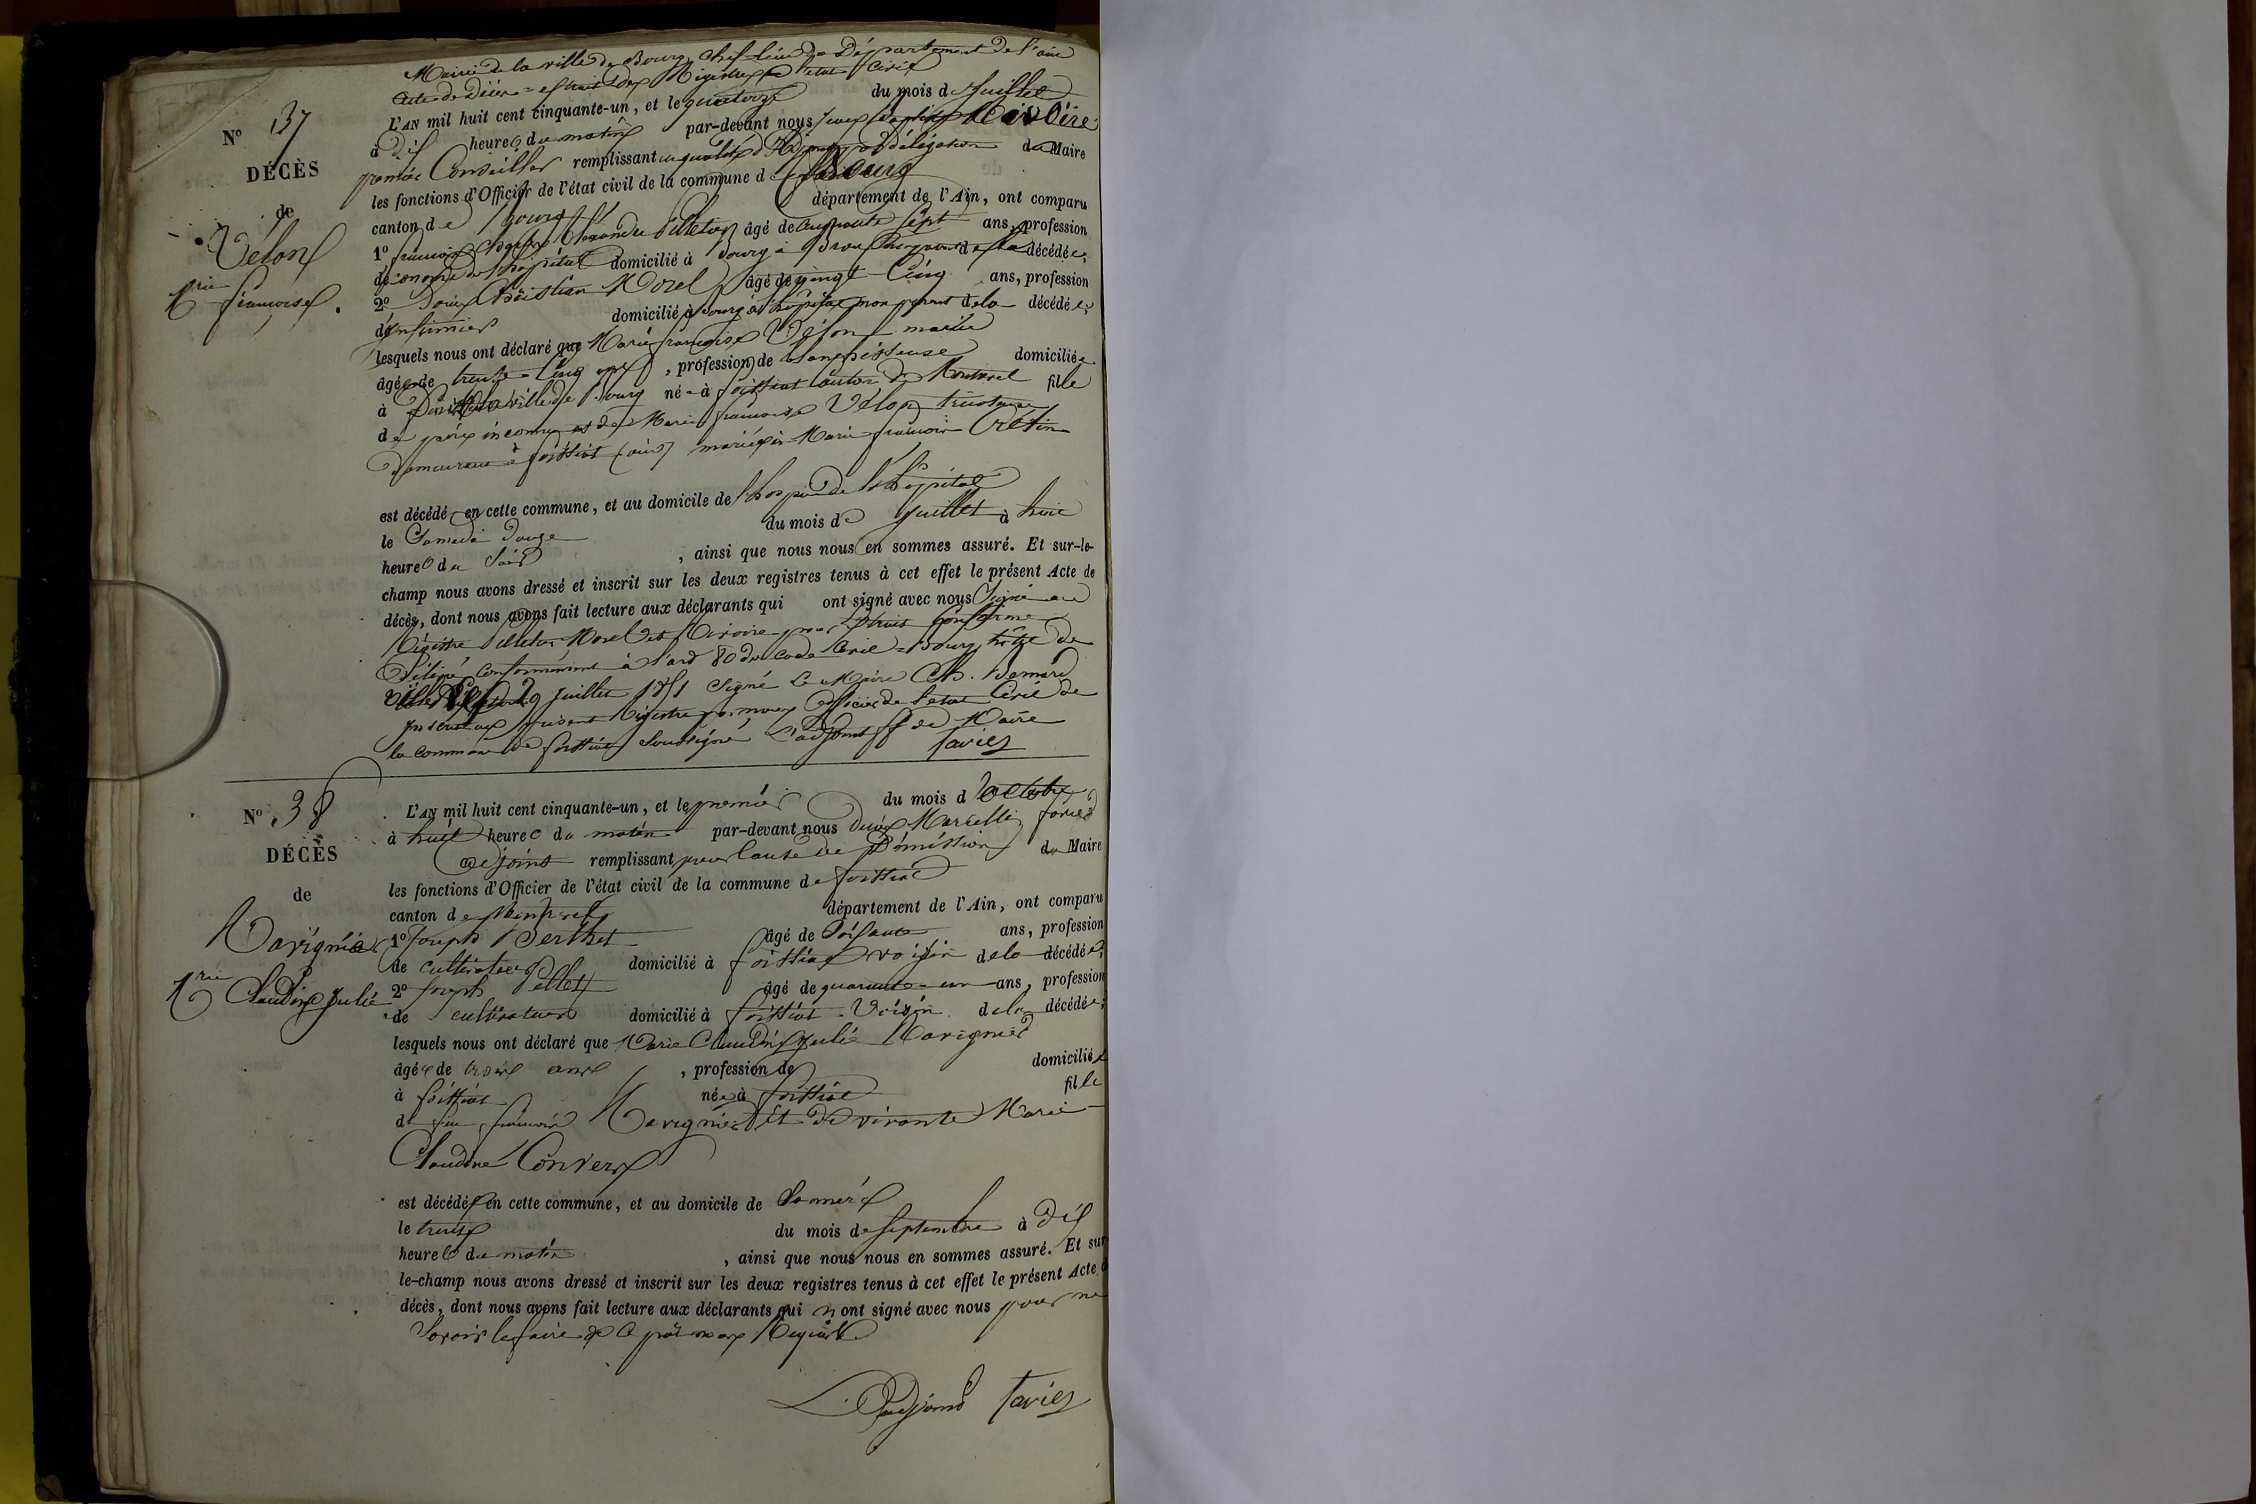 Mairie de la ville de Bourg Chef lieu du Département de l'ain
acte de décès = extrait des Régistres de l'état civil
N° 37
DÉCÈS
de
Vélon
Mrie françoise.
L'AN mil huit cent cinquante-un, et le quatorze du mois de Juillet
à dix heures du matin par-devant nous Jean Baptiste
premier Conseiller remplissant en qualité d'adjoint par délégation du Maire
les fonctions d'Officier de l'état civil de la commune de Bourg
canton de Bourg département de l'Ain, ont comparu
1° françois Alexandre âgé de cinquante sept ans, profession
d'économe de l'hôpital domicilié à Bourg de la décédée;
2° Christian Morel âgé de vingt-cinq ans, profession
d'infirmier domicilié à Bourg à l'hôpital non parent de la décédée;
lesquels nous ont déclaré que Marie françoise Vélon mariée
âgée de trente-cinq ans, profession de blanchisseuse domiciliée
à la ville de Bourg née à foissiat canton de Montrevel fille
de père inconnu et de Marie françoise Vélon
demeurant à foissiat (ain) mariée à Marie françois Crétin
est décédée en cette commune, et au domicile de l'hospice de l'hôpital
le Samedi douze du mois de Juillet à huit
heures du Soir, ainsi que nous nous en sommes assuré. Et sur-le-
champ nous avons dressé et inscrit sur les deux registres tenus à cet effet le présent Acte de
décès, dont nous avons fait lecture aux déclarants qui ont signé avec nous Signé au
Régistre Morel et pour Extrait conforme
Délivré conformément à l'art 80 du code Civil = Bourg hôtel de
ville Juillet 1851 Signé Le Maire Ch. Bernard
présent Régistre par nous officier de l'état Civil de
la commune de foissiat Soussigné L'adjoint ff de Maire
favier
N° 38
DÉCÈS
de
Ravignier
Mrie Claudine Julie
L'AN mil huit cent cinquante-un, et le premier du mois d'octobre
à huit heures du matin par-devant nous Denis Marcellin favier
adjoint remplissant pour cause de démission du Maire
les fonctions d'Officier de l'état civil de la commune de foissiat
canton de Montrevel département de l'Ain, ont comparu
1° Joseph Berthet âgé de soixante ans, profession
de cultivateur domicilié à foissiat voisin de la décédée;
2° Joseph Pellet âgé de quarante-un ans, profession
de cultivateur domicilié à foissiat Voisin de la décédée;
lesquels nous ont déclaré que Marie Claudine Julie Ravignier
âgée de trois ans, profession de domiciliée
à foissiat née à foissiat fille
de feu françois Ravignier et de vivante Marie
Claudine Convers
est décédée en cette commune, et au domicile de Sa mère
le trente du mois de Septembre à dix
heures du matin, ainsi que nous nous en sommes assuré. Et sur
le-champ nous avons dressé et inscrit sur les deux registres tenus à cet effet le présent Acte d
décès, dont nous avons fait lecture aux déclarants qui n'ont signé avec nous pour ne
Savoir le faire de ce par nous Requis
L'adjoint favier